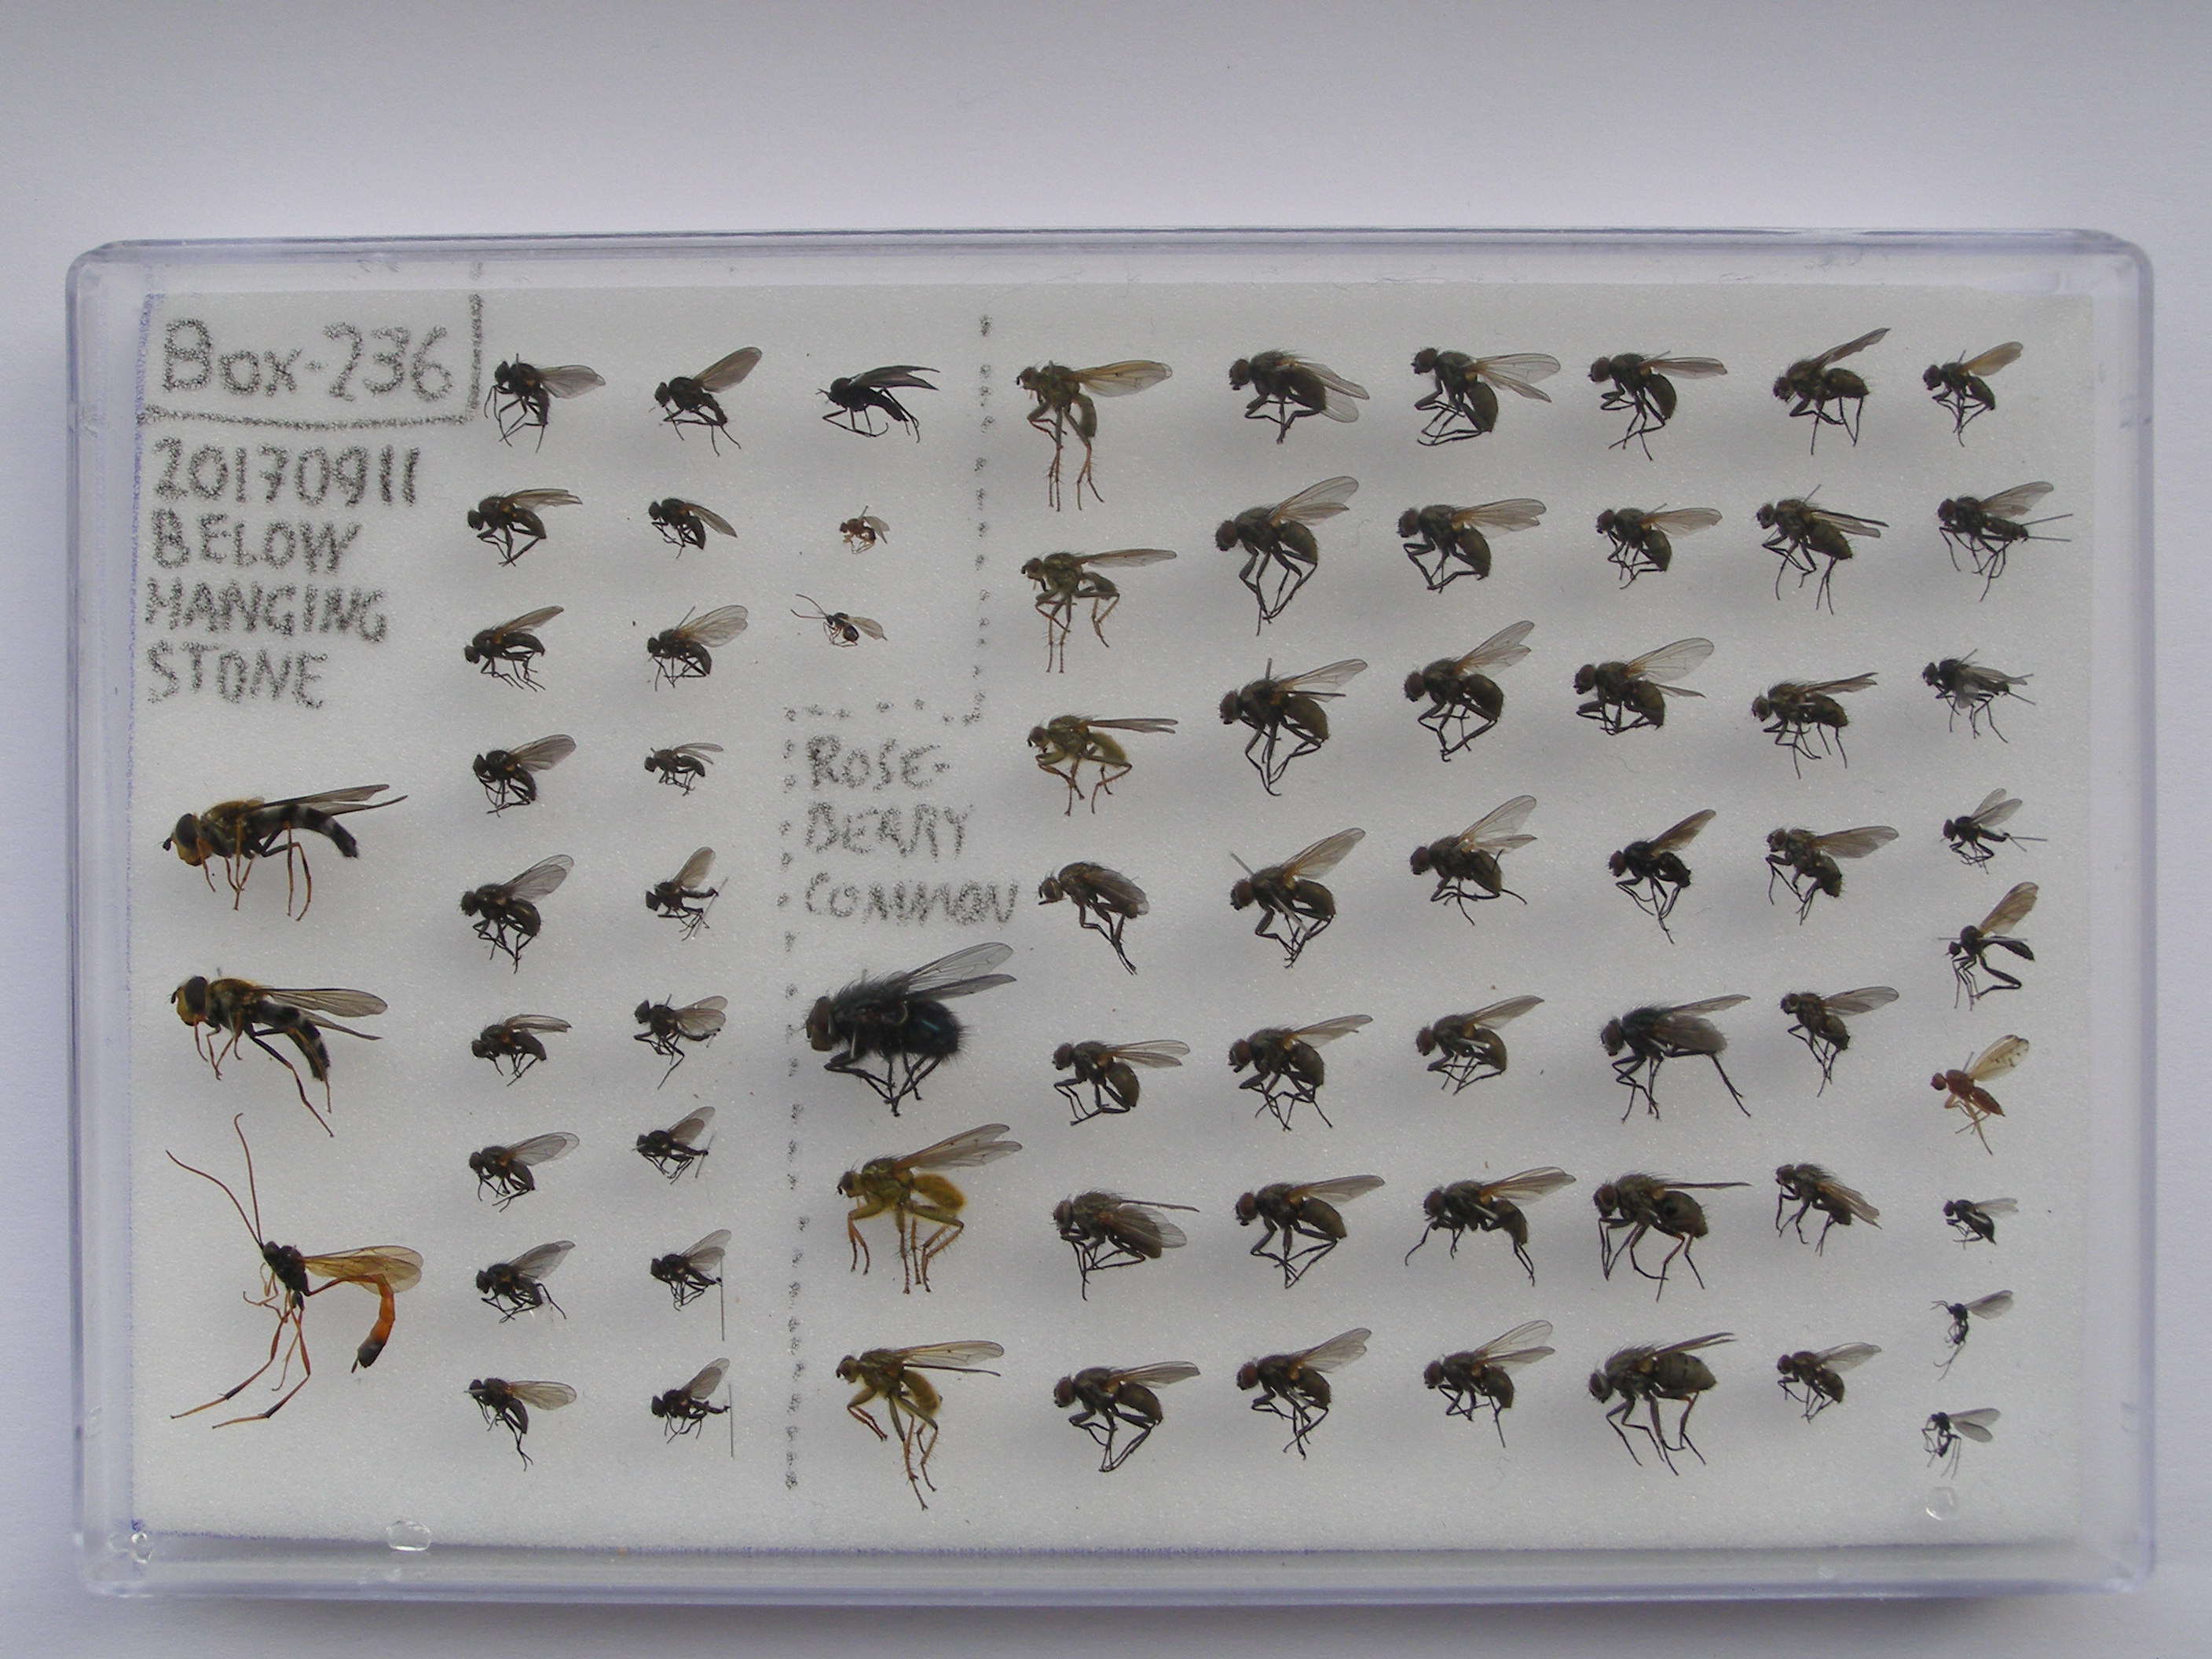 Box-236
20170911
BELOW
HANGING
STONE
ROSE-
BERRY
COMMON